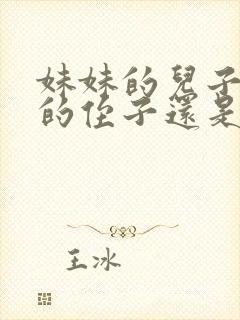 妹妹的兒子
的侄子還是
王冰